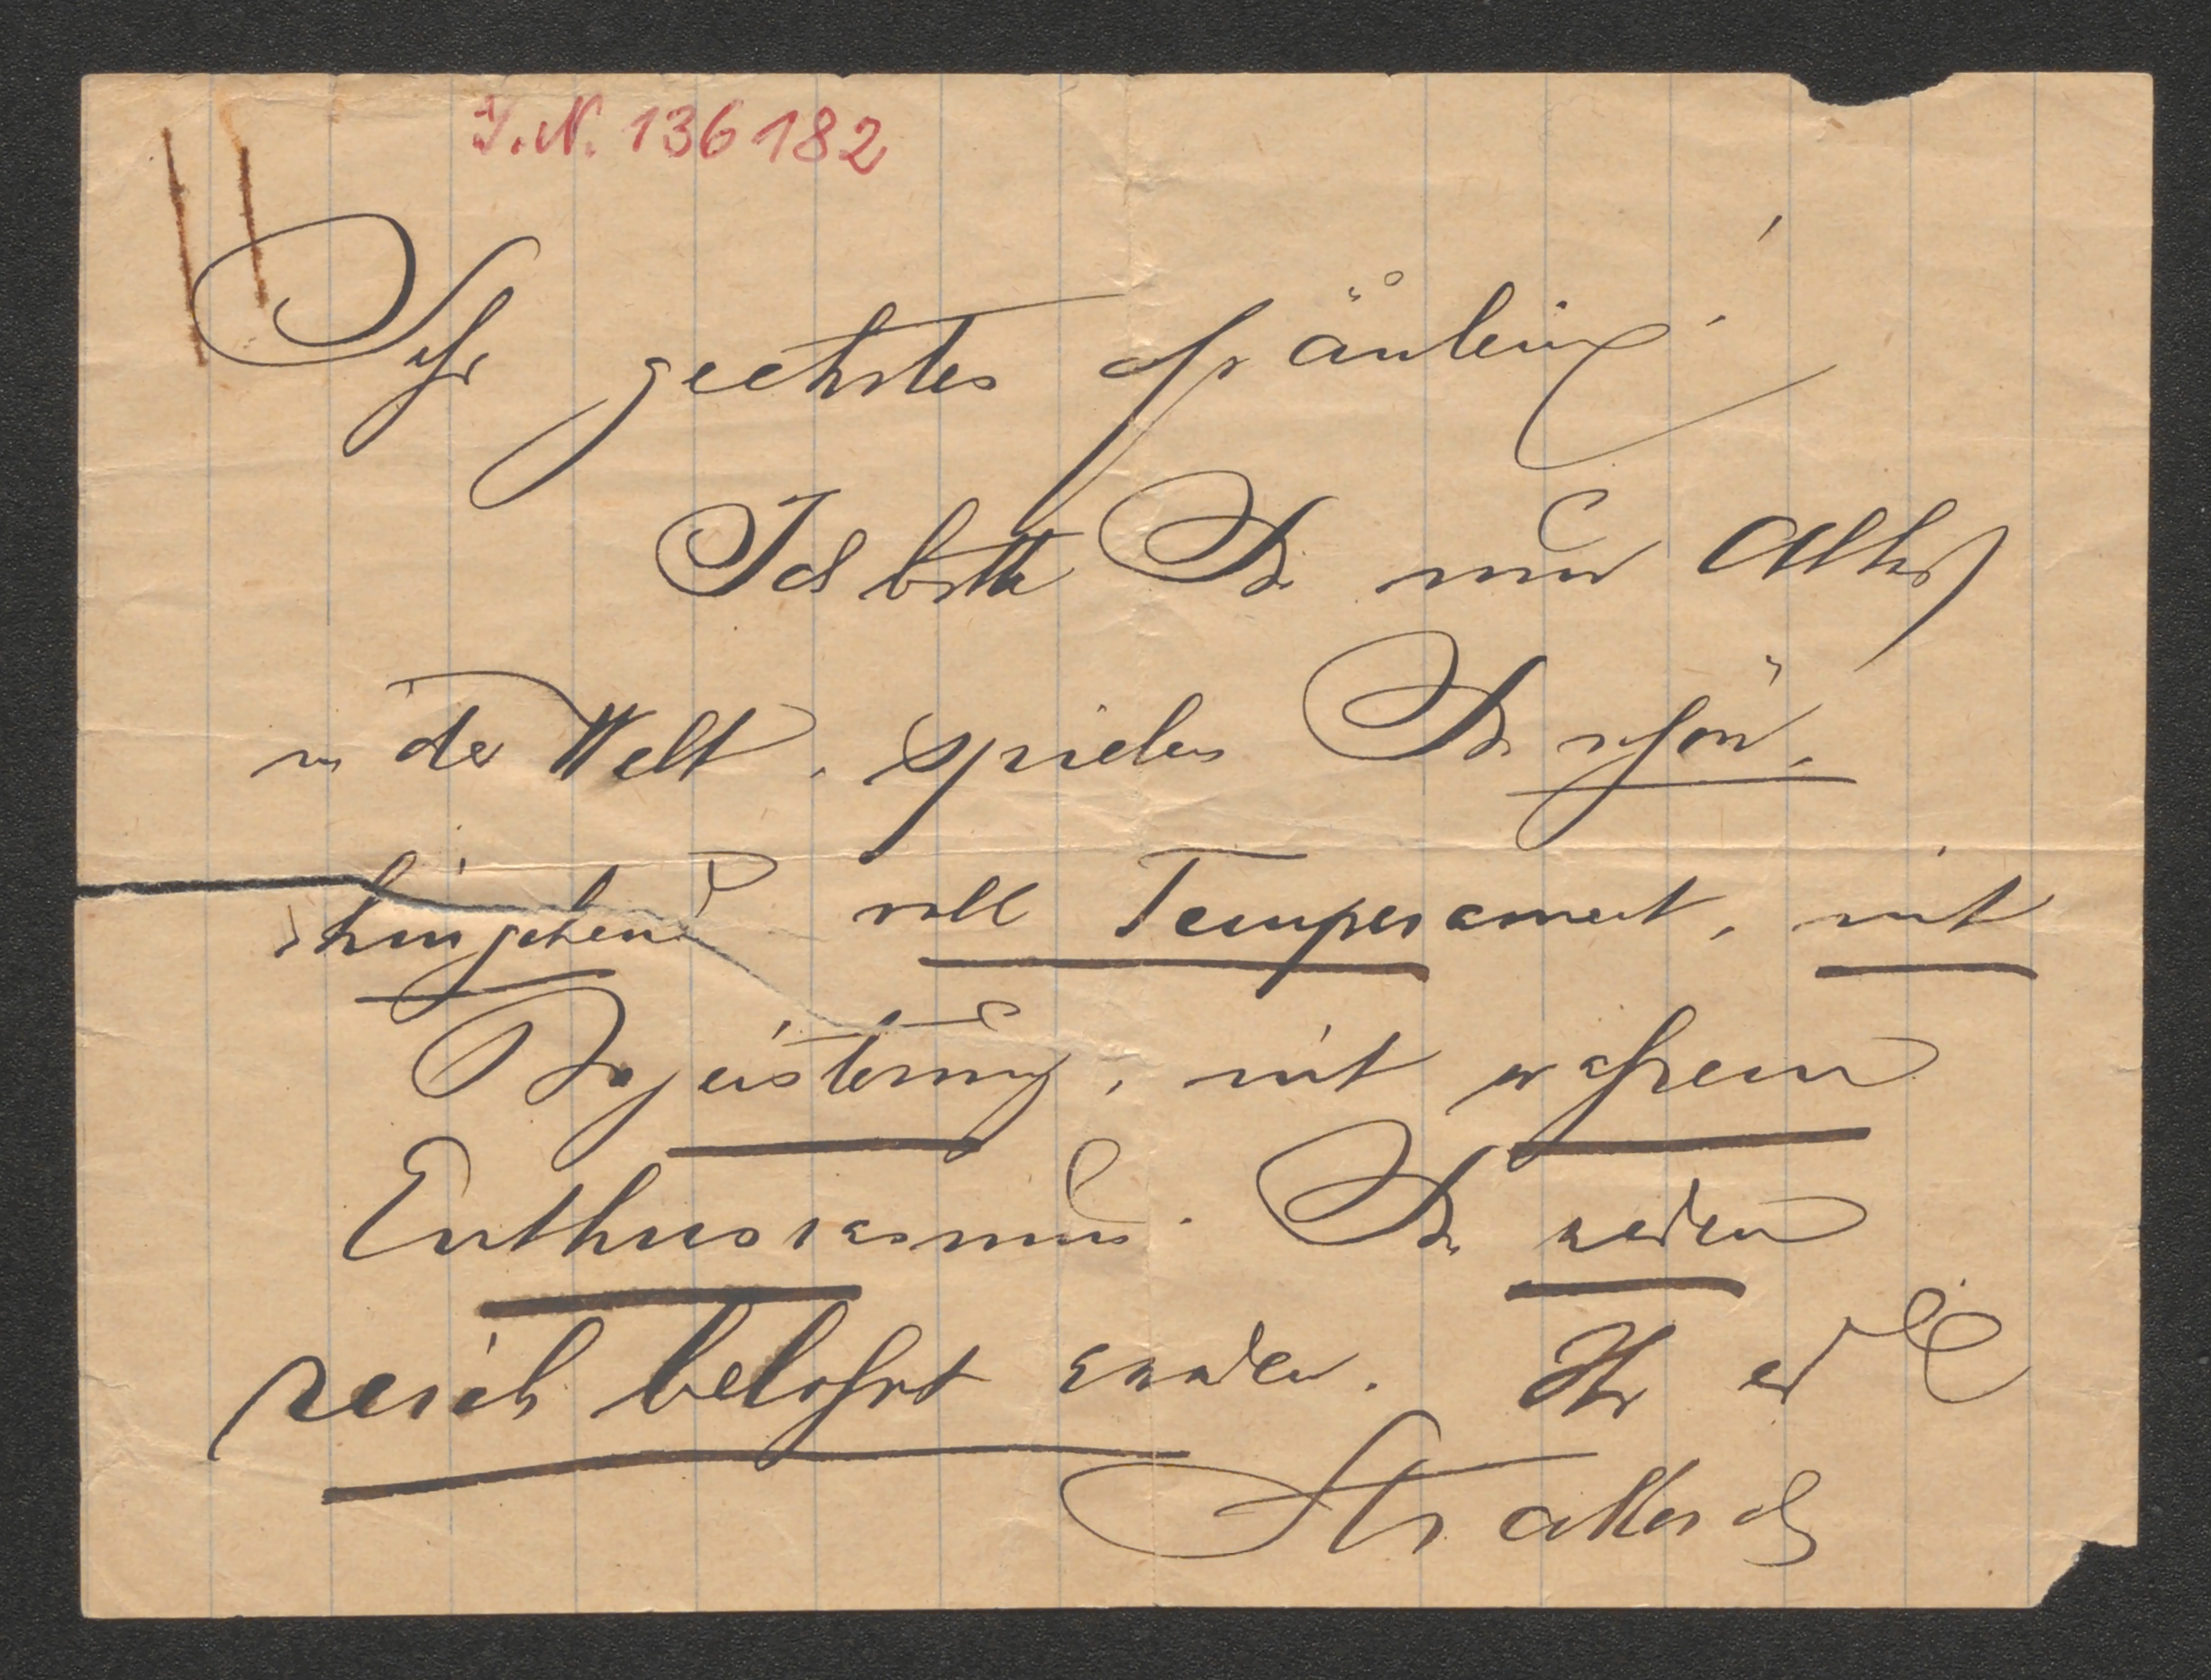 I. N. 136182
Sehr geehrtes Fräulein!
Ich bitte Sie um Alles
in der Welt, spielen Sie schön,
hingebend voll Temperament, mit
Begeisterung, mit wahrem
Enthusiasmus. Sie werden
reich belohnt werden. Ihr
Strakosch